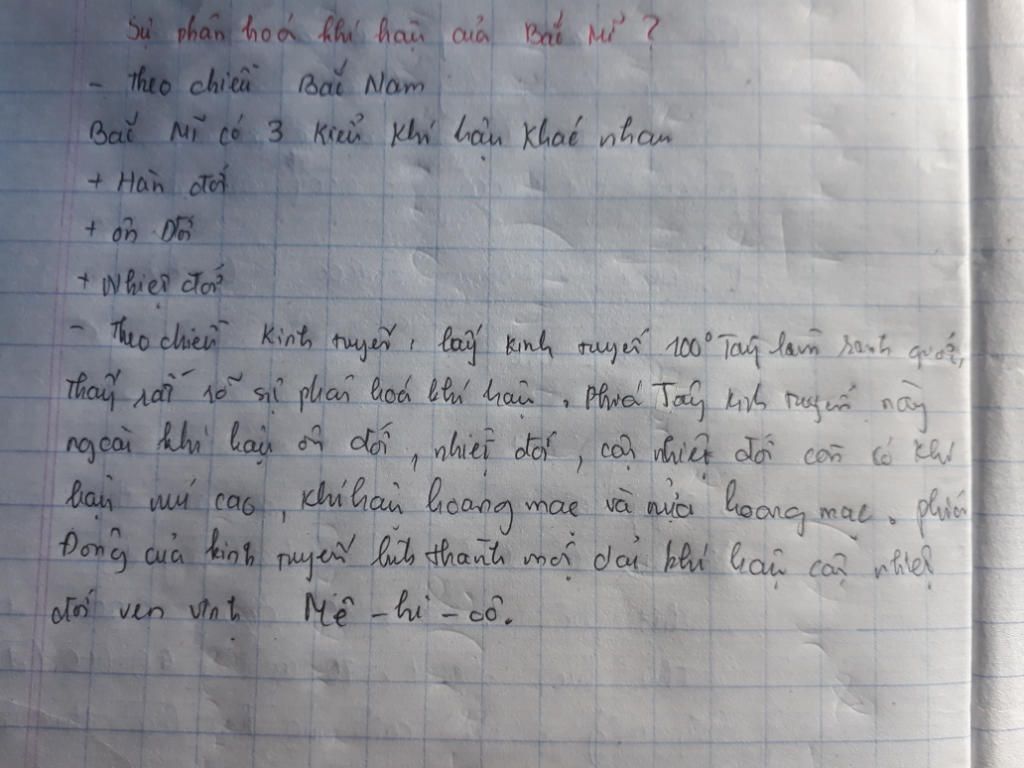 Sự phân hoá khí hậu của Bắc Mĩ ?
- Theo chiều Bắc Nam
Bắc Mĩ có 3 kiểu khí hậu khác nhau
+ Hàn đới
+ ôn Đới
+ Nhiệt đới
- Theo chiều Kinh tuyến, lấy kinh tuyến 100° Tây làm ranh giới,
thấy rất rõ sự phân hoá khí hậu. Phía Tây kinh tuyến này
ngoài khí hậu ôn đới, nhiệt đới, cận nhiệt đới còn có khí
hậu núi cao, khí hậu hoang mạc và nửa hoang mạc. phía
Đông của kinh tuyến hình thành một dải khí hậu cận nhiệt
đới ven vịnh Mê - hi - cô.